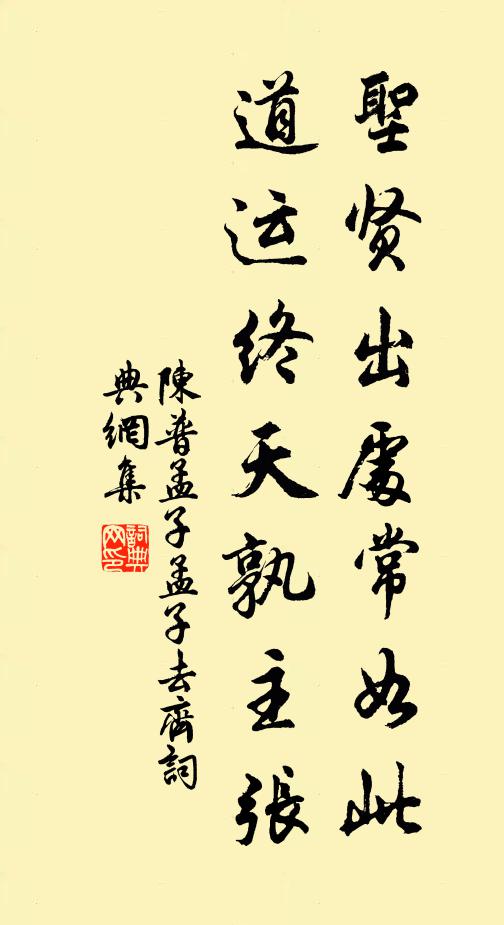 聖贤出處常如此
道运终天孰主張
陳普孟子孟子去齊詞
典網集
詞典網印